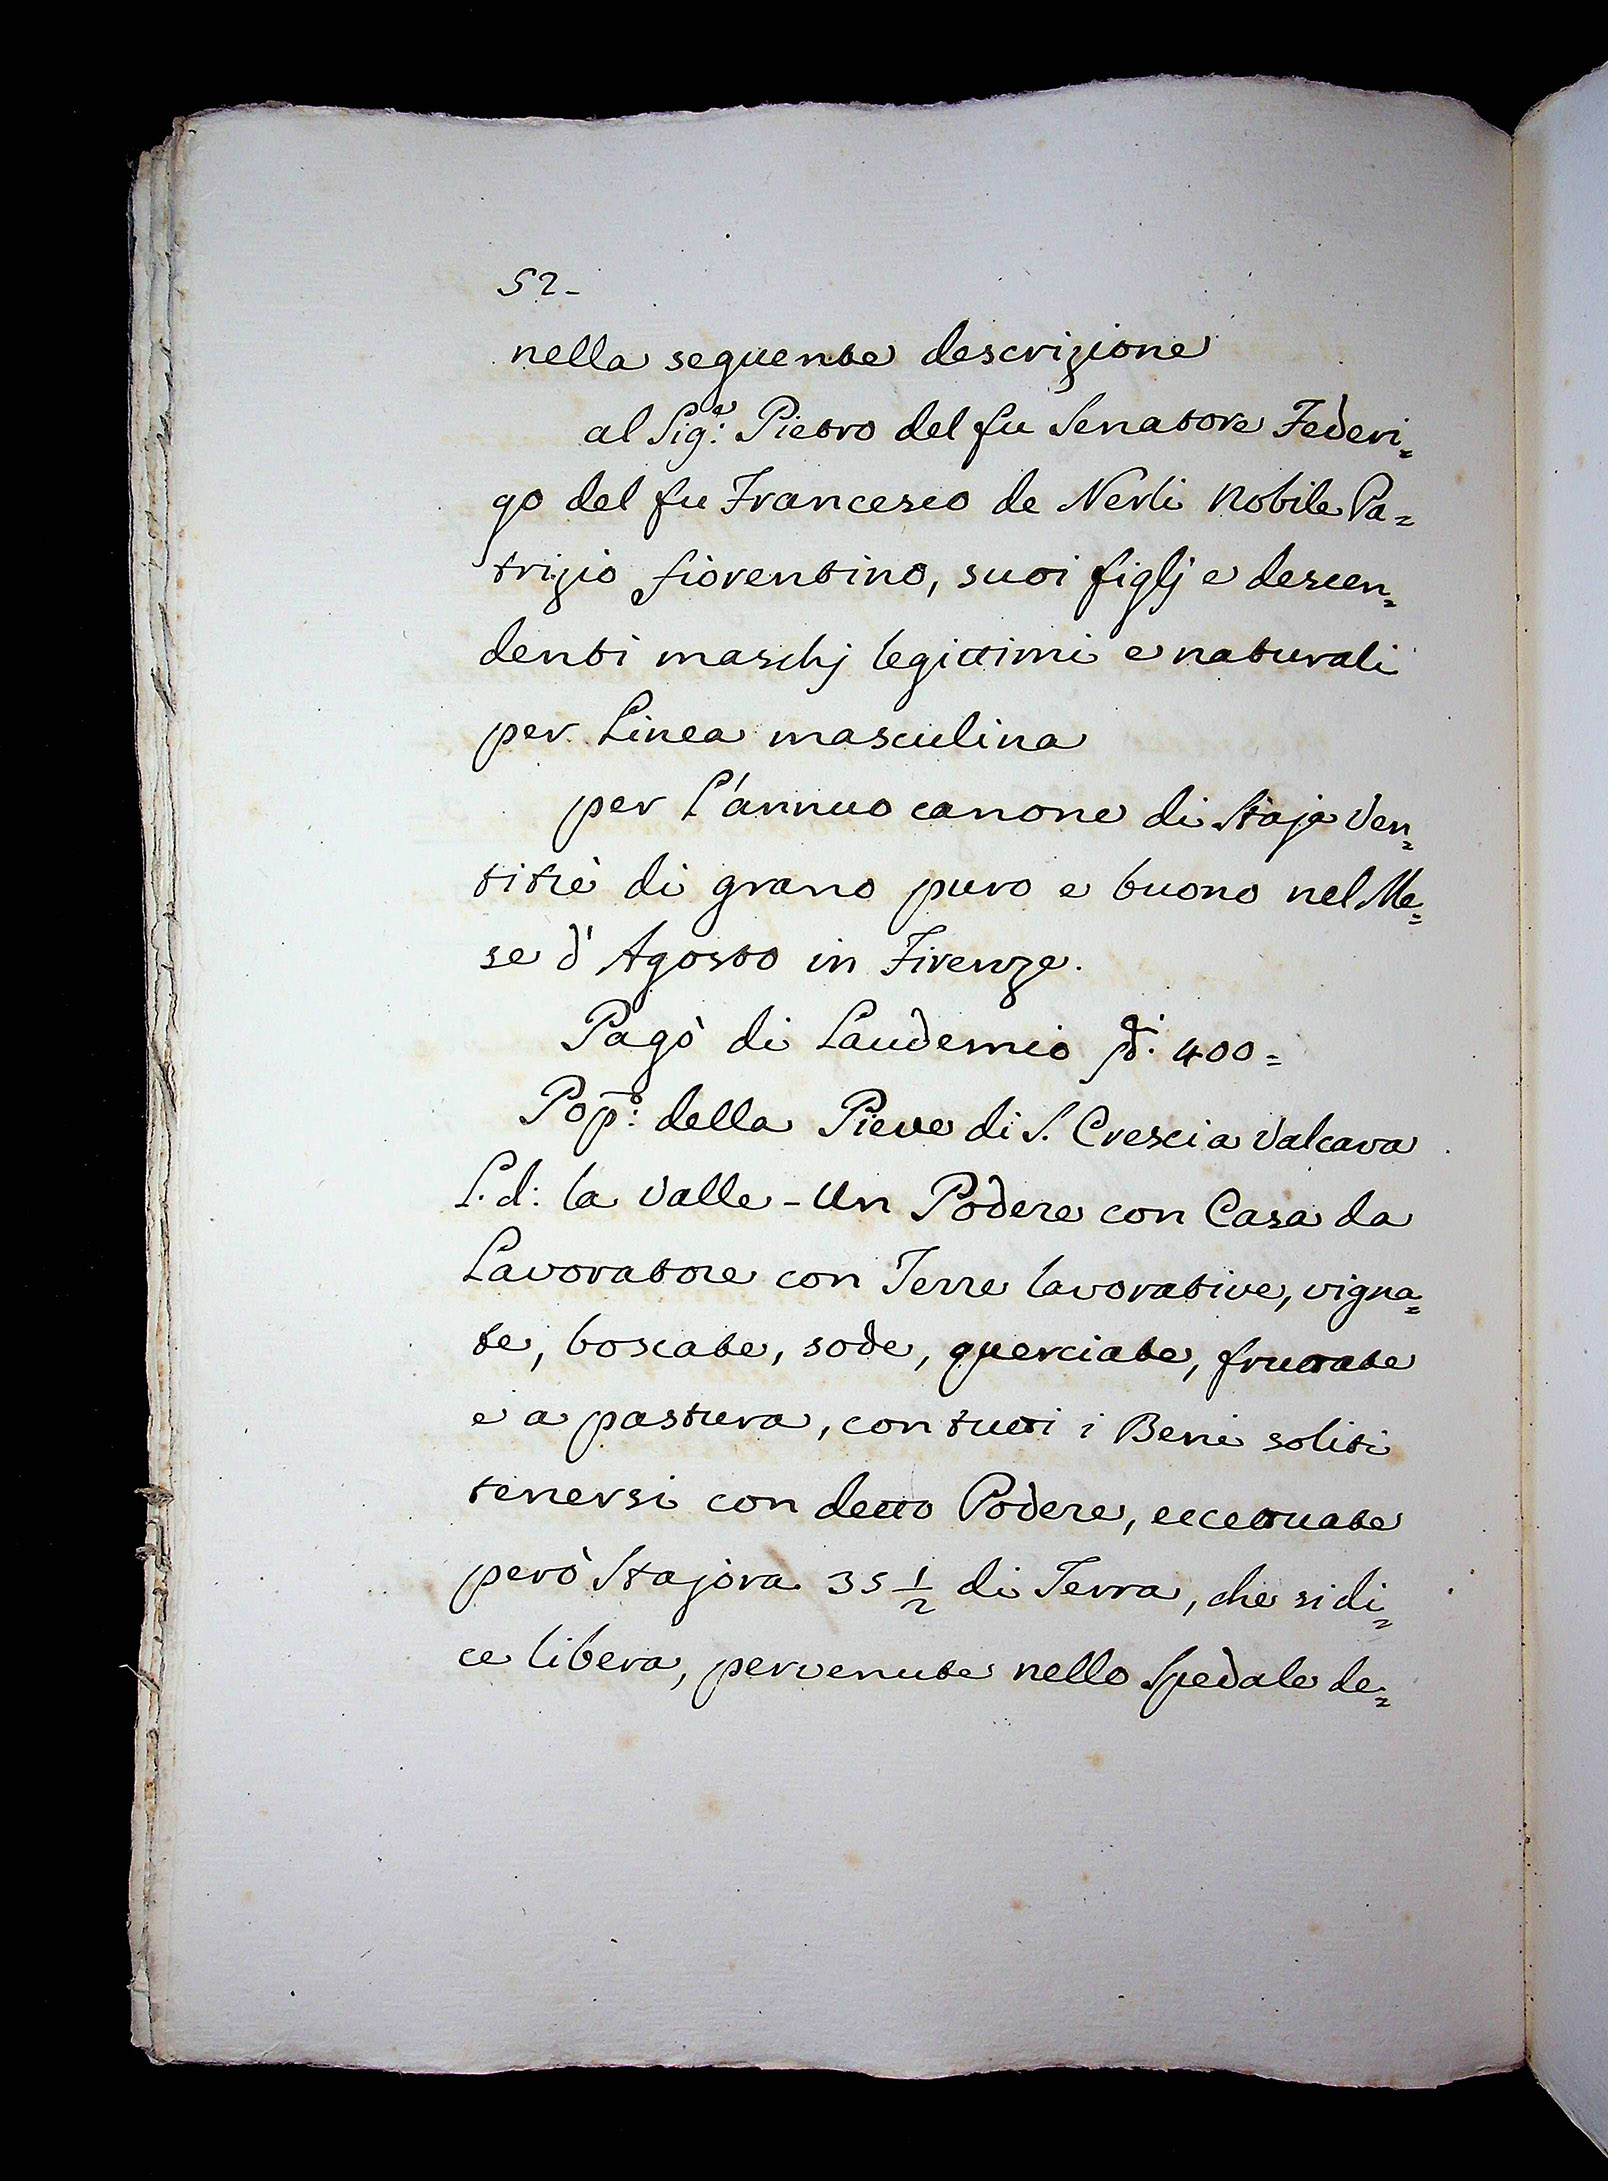 52-
nella seguente descrizione
al Sig.e Pietro del fu Senatore Federi=
go del fu Francesco de Nerli Nobile Pa=
trizio fiorentino, suoi figlj e descen=
denti maschj legittimi e naturali
per Linea masculina
per l'annuo canone di Staja Ven=
titrè di grano puro e buono nel Me=
se d'Agosto in Firenze.
Pagò di Laudemio 400=
Pop:o della Pieve di S. Cresci a Valcava
L. d: la Valle - Un Podere con Casa da
Lavoratore con Terre lavorative, vigna=
te, boscate, sode, querciate, fruttate
e a pastura, con tutti i Beni soliti
tenersi con detto Podere, eccettuate
però Stajora 35 1/2 di Terra, che si di=
ce libera, pervenute nello Spedale de=